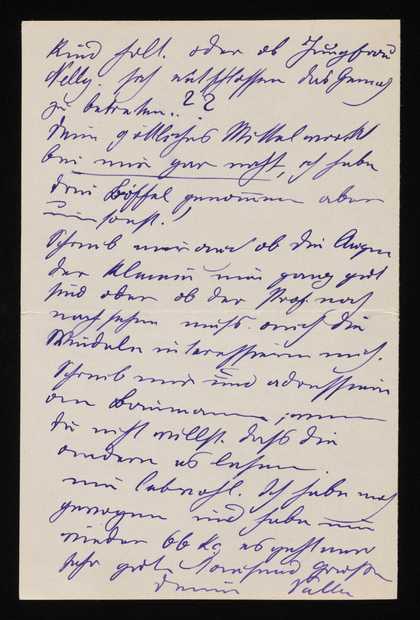 Kind hält. oder ob Jungfrau
Nelly sich entschlossen das Gemach
zu betreten..??
Dein göttliches Mittel wirkt
bei mir gar nicht, ich habe
drei Löffel genommen aber
umsonst.!
Schreib mir auch ob die Augen
der Kleinen nun ganz gut
sind oder ob der Prof. noch
nachsehen muss. auch die
Windeln interessieren mich.
Schreib mir und adressiere
an Baumann, wenn
du nicht willst. dass die
andern es lesen.
nun lebwohl. Ich habe mich
gewogen und habe nun
wieder 66 Kg es geht mir
sehr gut. Tausend Grüsse
Deine